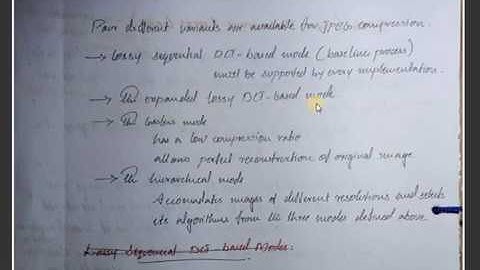 Four different variants are available for JPEG compression.
→ lossy sequential DCT-based mode (baseline process)
must be supported by every implementation.
→ The expanded lossy DCT-based mode
→ The lossless mode
has a low compression ratio
allows perfect reconstruction of original image
→ The hierarchical mode
Accomodates images of different resolutions and selects
its algorithms from the three modes defined above
Lossy Sequential DCT based Modes: